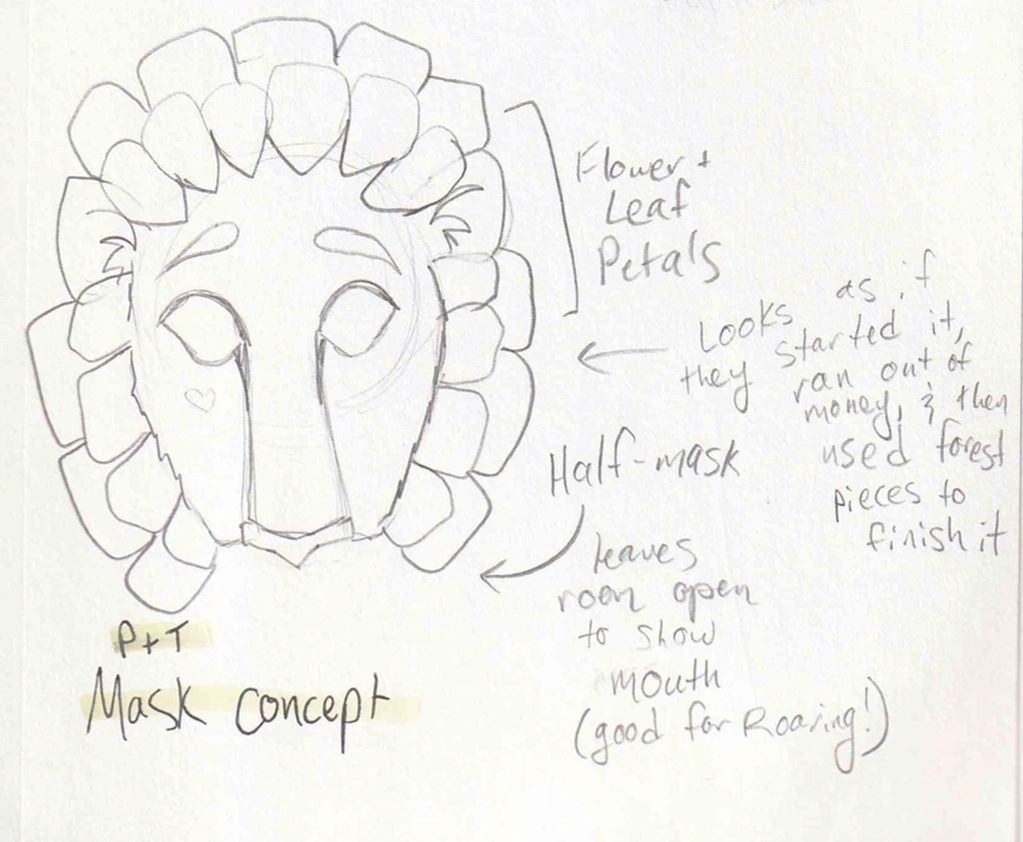 Flower +
Leaf
Petals
Looks as if
they started it,
ran out of
money, & then
used forest
pieces to
finish it
Half-mask
leaves
room open
to show
mouth
(good for Roaring!)
P+T
Mask concept